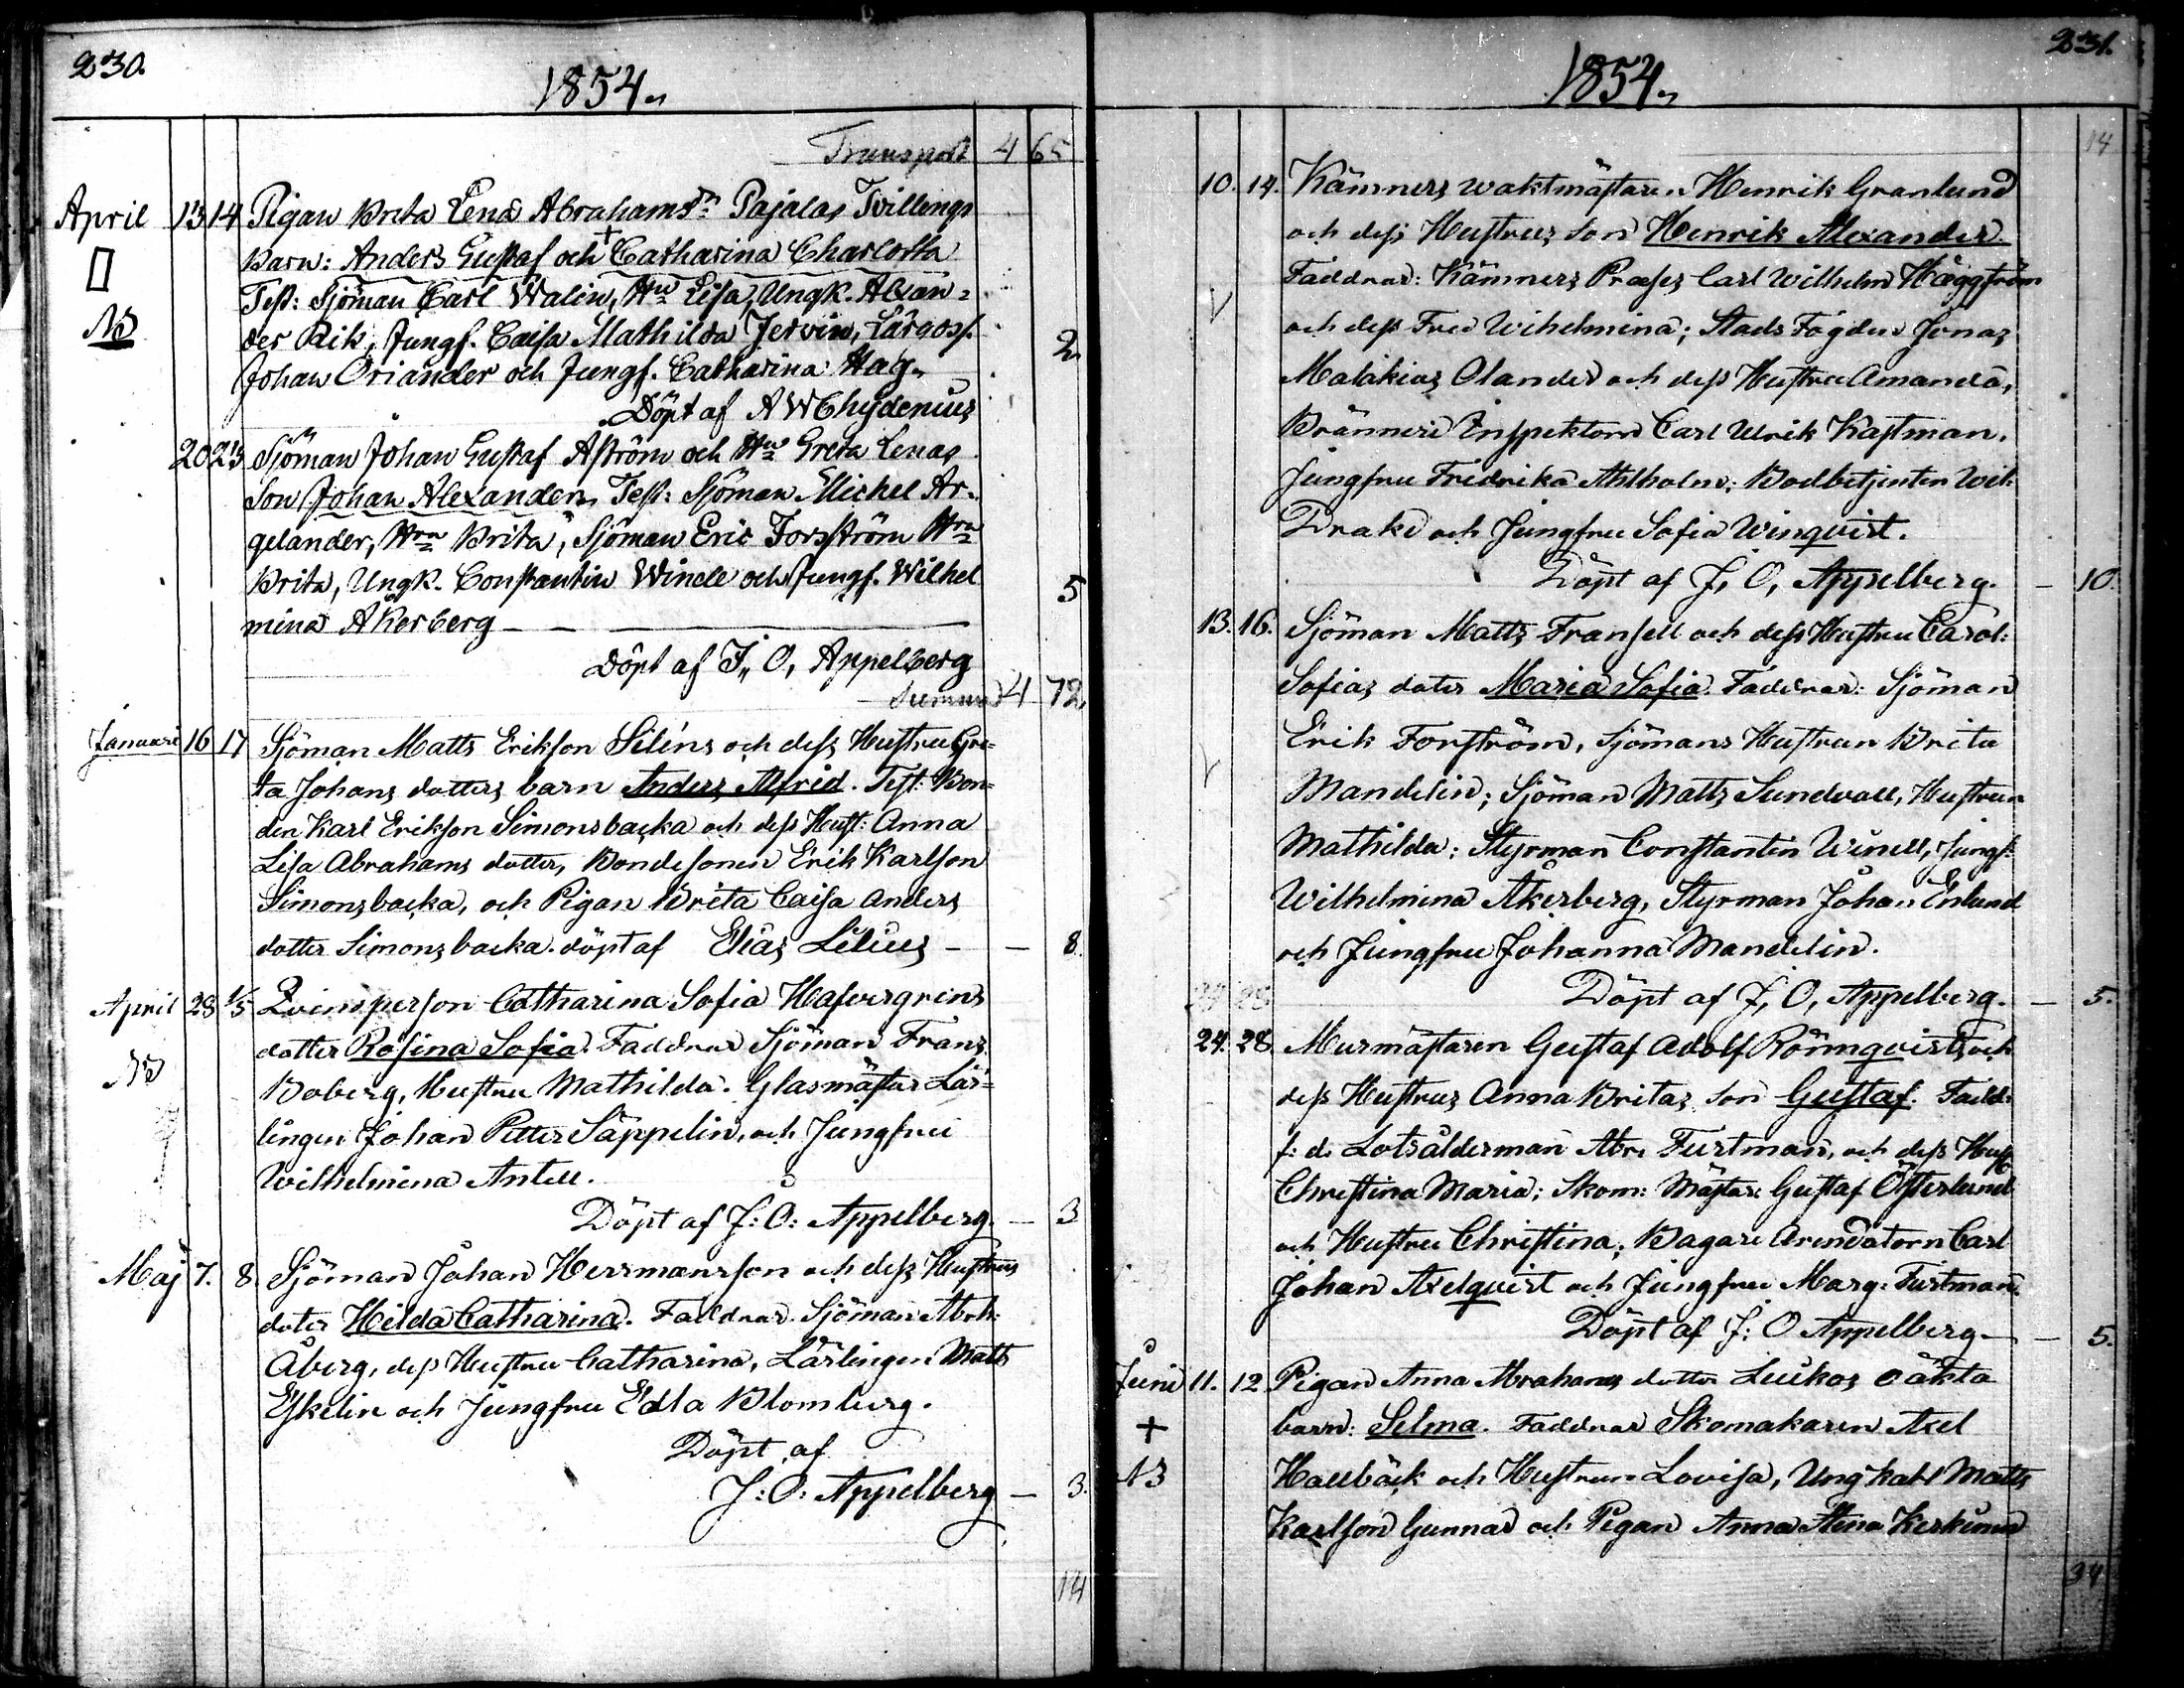 230.
1854.
Transport 4 65
April 13 14 Pigan Brita Lena Abrahamsdr Pajalas Tvillings
barn: Anders Gustaf och + Catharina Charlotta
Test: Sjöman Carl Walin, Hu Lisa, Ungk. Alexan=
der Rik, Jungf. Caisa Mathilda Jervin, Lärgoss.
Johan Oriander och Jungf. Catharina Hag. 2.
Döpt af A W Chydenius
20 23 Sjöman Johan Gustaf Åström och Hu Greta Lenas
Son Johan Alexander, Test: Sjöman Michel Ar-
gelander, Hru Brita, Sjöman Eric Forsström Hru
Brita, Ungk. Constantin Winell och Jungf. Wilhel 5
mina Åkerberg
Döpt af J. O. Appelberg
Summa 4 72
Januari 16 17 Sjöman Matts Erikson Siléns och dess Hustru Gre-
ta Johans dotters barn Anders Alfrid. Test: Bon-
den Karl Erikson Simonsbacka och dess Hust: Anna
Lisa Abrahams dotter, Bondesonen Erik Karlson
Simonsbacka, och Pigan Brita Caisa Anders
dotter Simonsbacka. döpt af Elias Lilius — — 8.
April 28 1/5 Qvinsperson Catharina Sofia Hafvergrens
NB dotter Rosina Sofia. Faddrar Sjöman Frans
Boberg, Hustru Mathilda. Glasmästar Lär=
lingen Johan Petter Säppelin, och Jungfru
Wilhelmina Antell.
Döpt af J: O: Appelberg. — 3
Maj 7. 8. Sjöman Johan Herrmansson och dess Hustrus
doter Hilda Catharina. Faddrar. Sjöman Abrh:
Åberg, dess Hustru Catharina, Lärlingen Matts
Eskelin och Jungfru Edla Blomberg.
Döpt af
J: O: Appelberg — 3.
14
231.
1854.
14
10. 14. Kämners waktmästaren Henrik Granlund
och dess Hustrus son Henrik Alexander.
Faddrar: Kämners Præses Carl Wilhelm Häggström
och dess Fru Wihelmina; Stads Fogden Jonas
Malakias Olander och dess Hustru Amanda,
Bränneri Inspektorn Carl Ulrik Kastman.
Jungfru Fridrika Ahlholm; Bodbetjenten Wil:
Drake och Jungfru Sofia Winqvist.
Döpt af J, O, Appelberg. — 10.
13. 16. Sjöman Matts Fransell och dess Hustru Carol:
Sofias doter Maria Sofia. Faddrar: Sjöman
Erik Forström, Sjömans Hustrun Brita
Mandelin; Sjöman Matts Sundvall, Hustrun
Mathilda; Styrman Constantin Winell, Jungf:
Wilhelmina Åkerberg, Styrman Johan Enlund
och Jungfru Johanna Mandelin.
Döpt af J, O, Appelberg. — 5.
24. 28. Murmästaren Gustaf Adolf Rönnqvists och
dess Hustrus Anna Britas son Gustaf. Fadd:
f: d. Lotsålderman Abr. Furtman, och dess Hust
Christina Maria; Skom: Mästar: Gustaf Österlund
och Hustru Christina; Bagare Arendatorn Carl
Johan Axelqvist och Jungfru Marg: Furtman.
Döpt af J: O Appelberg — — 5.
Juni 11. 12 Pigan Anna Abrahams dotter Luukas oäkta
+ barn: Selma. Faddrar Skomakaren Axel
NB Hallbäck och Hustrun Lovisa, Ung karl Matts
Karlson Gunnar och Pigan Anna Stina
34